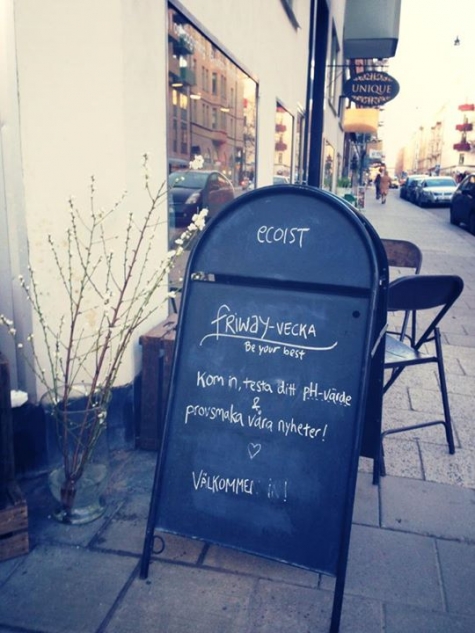 UNIQUE
ECOIST
FRIWAY-VECKA
Be your best
Kom in, testa ditt pH-värde
&
provsmaka våra nyheter!
♡
VÄLKOMMEN IN!